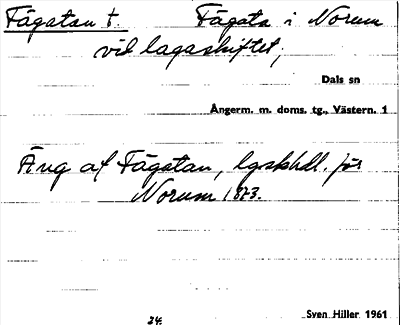 Fägatan t. Fägata i Norum
vid lagaskiftet;
Dals sn
Ångerm. m. doms. tg., Västern. 1
Äng af Fägatan, lgskhdl. för
Norum 1873.
24. Sven Hiller 1961